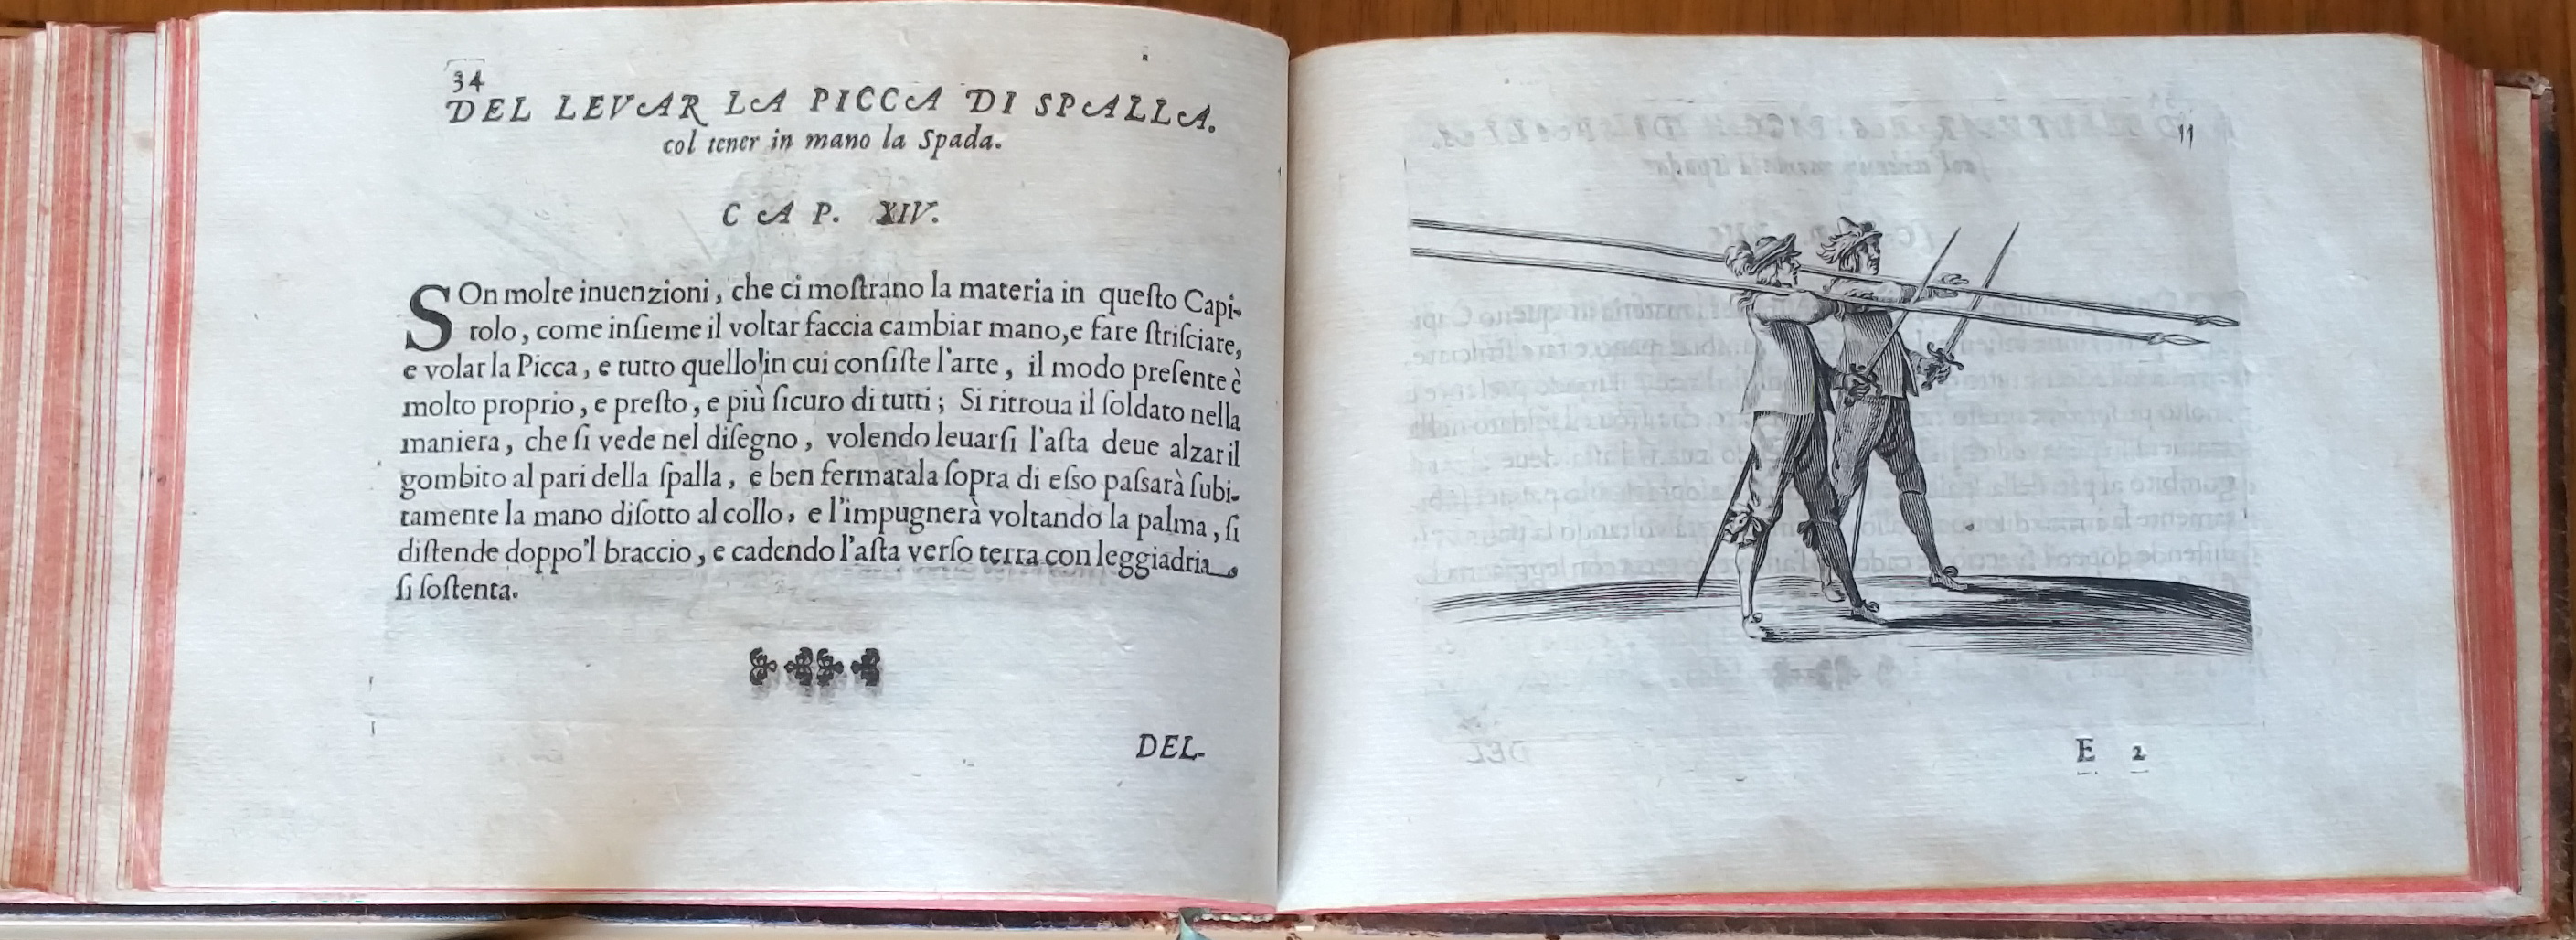 34
DEL LEVAR LA PICCA DI SPALLA.
col tener in mano la Spada.
CAP. XIV.
SOn molte inuenzioni, che ci moſtrano la materia in queſto Capi-
tolo, come inſieme il voltar faccia cambiar mano, e fare ſtriſciare,
e volar la Picca, e tutto quello in cui conſiſte l'arte, il modo preſente è
molto proprio, e preſto, e più ſicuro di tutti; Si ritroua il ſoldato nella
maniera, che ſi vede nel diſegno, volendo leuarſi l'aſta deue alzar il
gombito al pari della ſpalla, e ben fermatala ſopra di eſso paſsarà ſubi-
tamente la mano diſotto al collo, e l'impugnerà voltando la palma, ſi
diſtende doppo'l braccio, e cadendo l'aſta verſo terra con leggiadria
ſi ſoſtenta.
DEL-
11
E 2